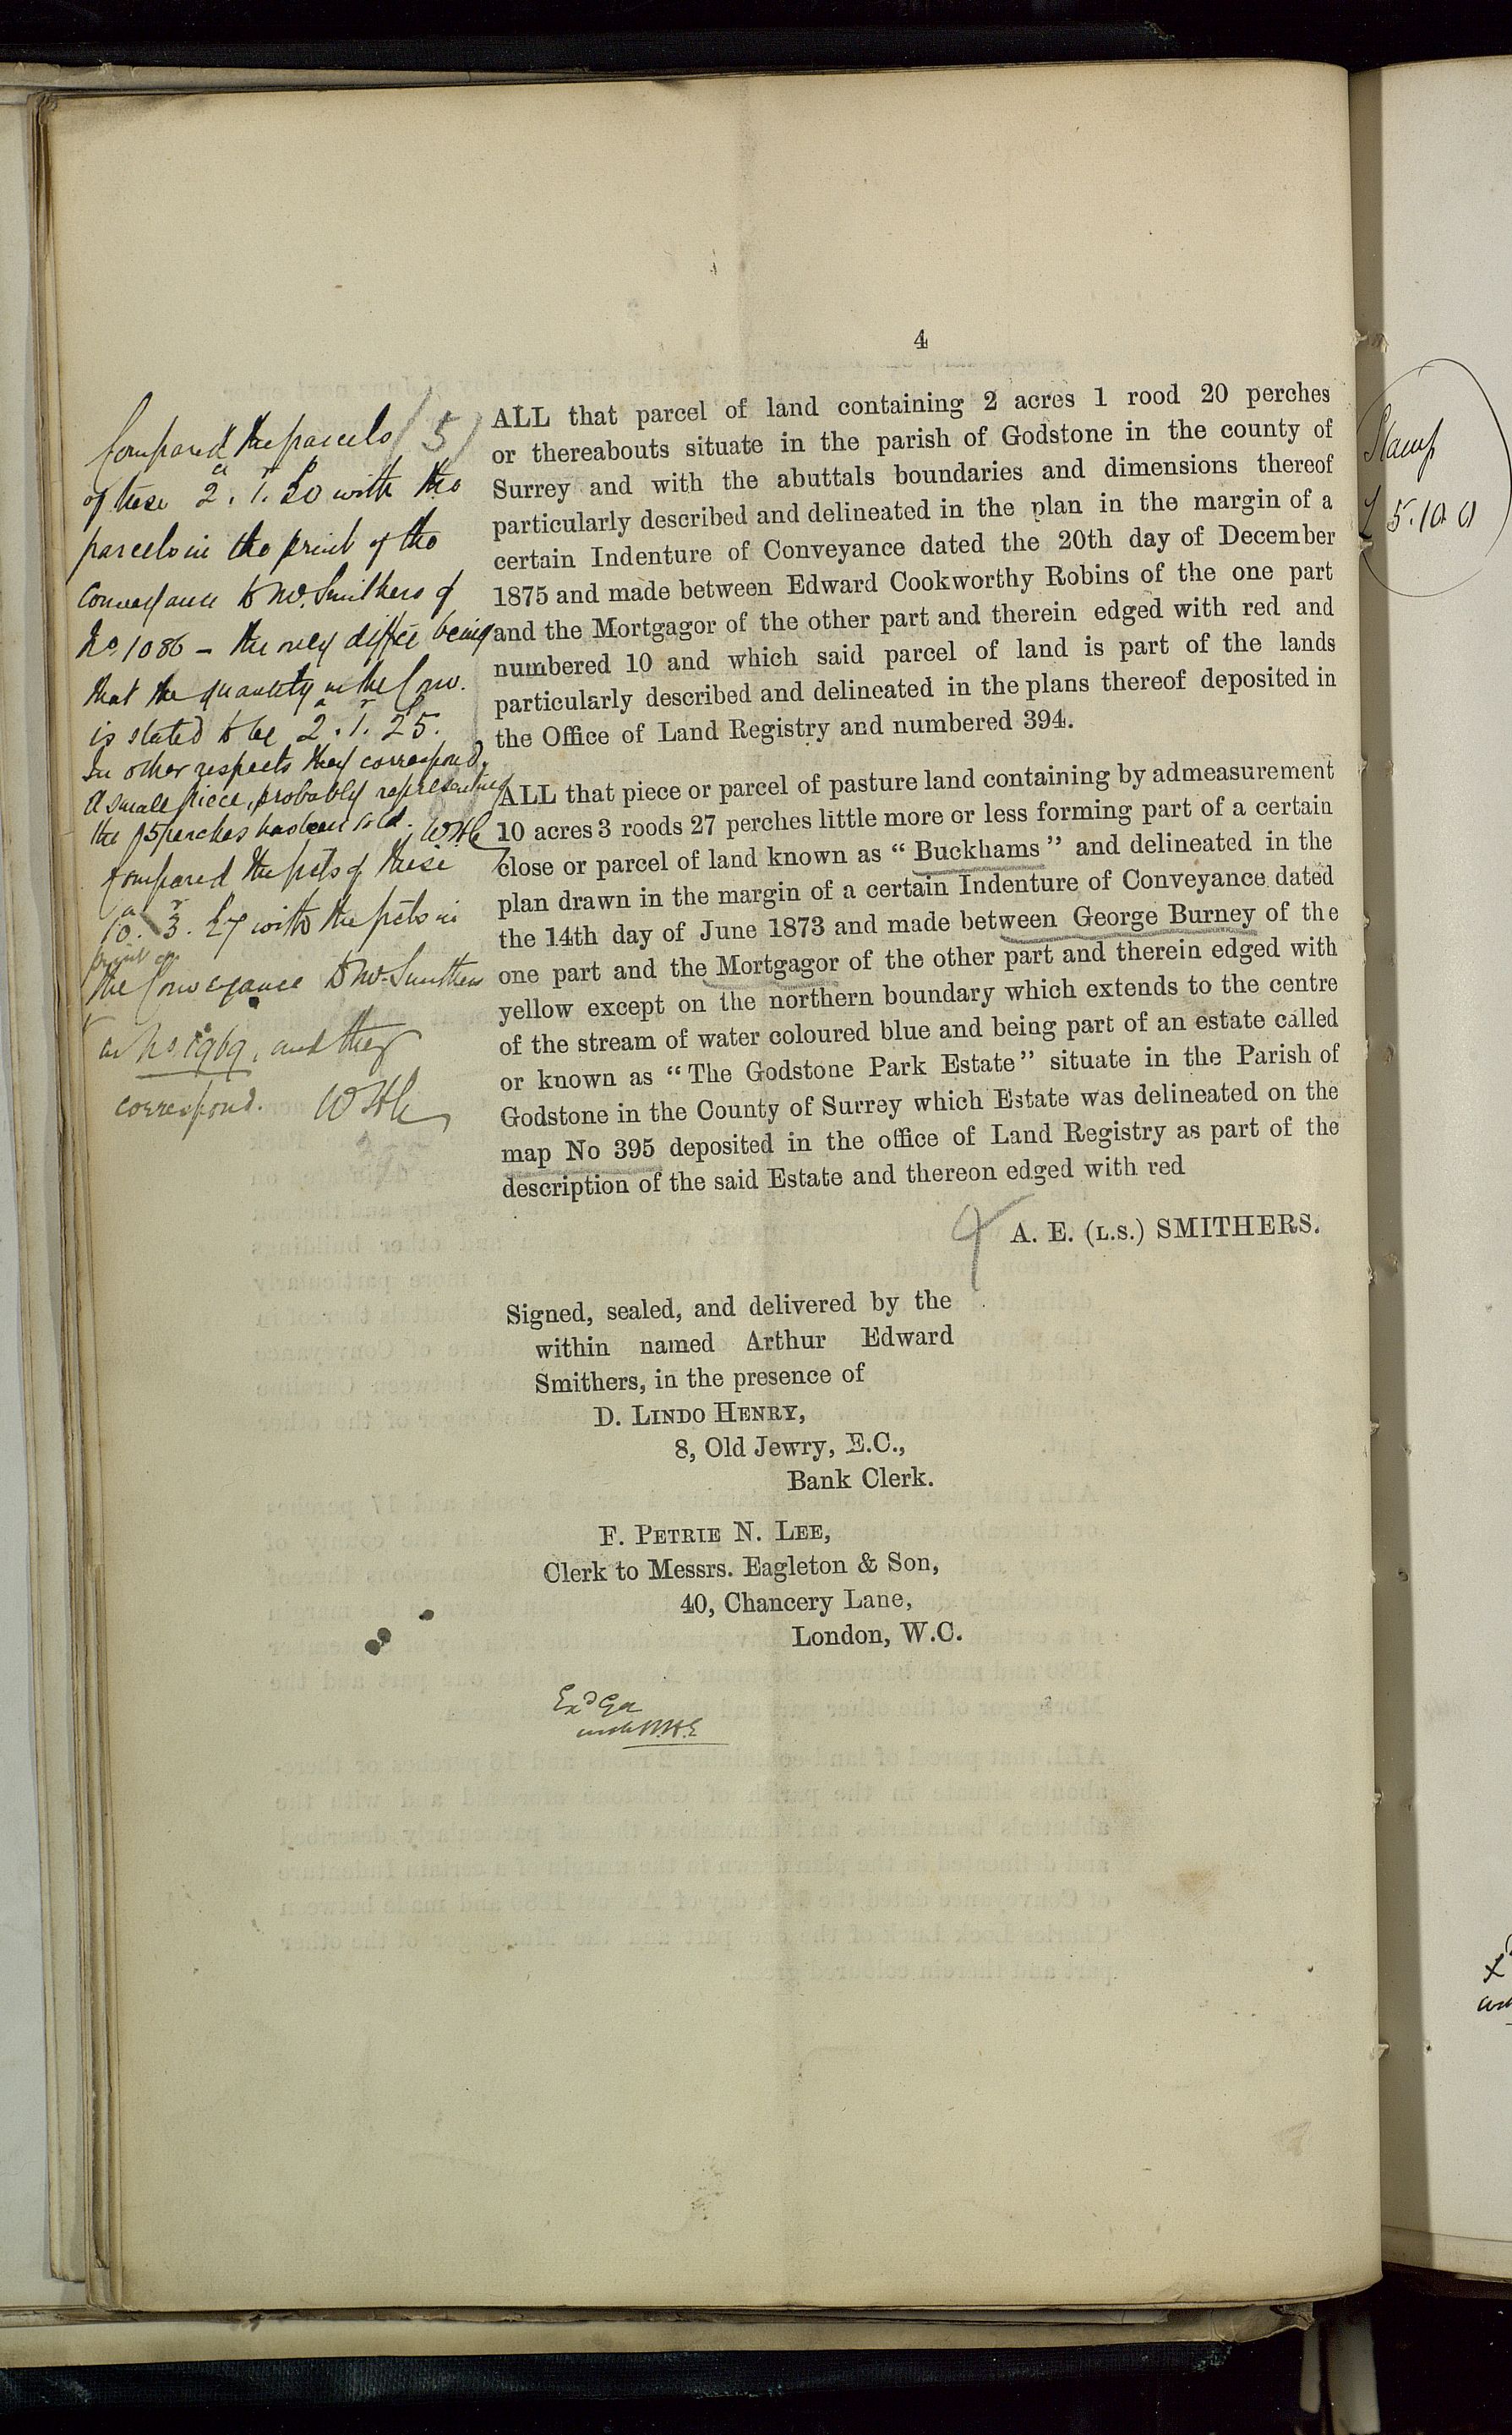 4
ALL that parcel of land containing 2 acres 1 rood 20 perches
or thereabouts situate in the parish of Godstone in the county of
Surrey and with the abuttals boundaries and dimensions thereof
particularly described and delineated in the plan in the margin of a
certain Indenture of Conveyance dated the 20th day of December
1875 and made between Edward Cookworthy Robins of the one part
and the Mortgagor of the other part and therein edged with red and
numbered 10 and which said parcel of land is part of the lands
particularly described and delineated in the plans thereof deposited in
the Office of Land Registry and numbered 394.
ALL that piece or parcel of pasture land containing by admeasurement
10 acres 3 roods 27 perches little more or less forming part of a certain
close or parcel of land known as “Buckhams” and delineated in the
plan drawn in the margin of a certain Indenture of Conveyance dated
the 14th day of June 1873 and made between George Burney of the
one part and the Mortgagor of the other part and therein edged with
yellow except on the northern boundary which extends to the centre
of the stream of water coloured blue and being part of an estate called
or known as “The Godstone Park Estate” situate in the Parish of
Godstone in the County of Surrey which Estate was delineated on the
map No 395 deposited in the office of Land Registry as part of the
description of the said Estate and thereon edged with red
A. E. (L.S.) SMITHERS.
Signed, sealed, and delivered by the
within named Arthur Edward
Smithers, in the presence of
D. LINDO HENRY,
8, Old Jewry, E.C.,
Bank Clerk.
F. PETRIE N. LEE,
Clerk to Messrs. Eagleton & Son,
40, Chancery Lane,
London, W.C.
Compared the parcels (5)
of these 2a. 1r. 20p with the
parcels in the print of the
Conveyance to Mr. Smithers of
No. 1086 – the only diffce being
that the quantity in the Conv.
is stated to be 2a. 1r. 25p.
In other respects they correspond.
A small piece, probably representing
the 5 perches has been sold. WHC
Compared the pcls of these
10a. 3r. 27 with the pcls in
print of
the Conveyance to Mr Smithers
No. 1969, and they
correspond. WHC
Exd
Stamp
£5.10.0